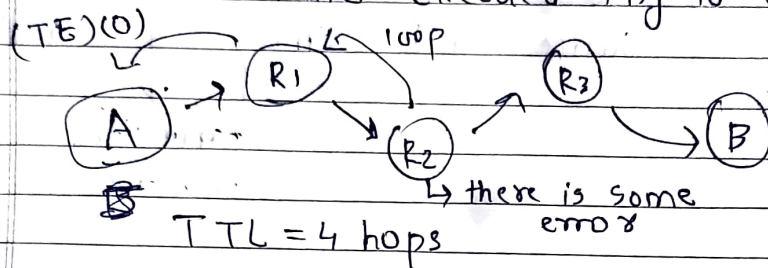 (TE)(0)
loop
R1
R3
A
R2
B
↳ there is some
error
TTL = 4 hops